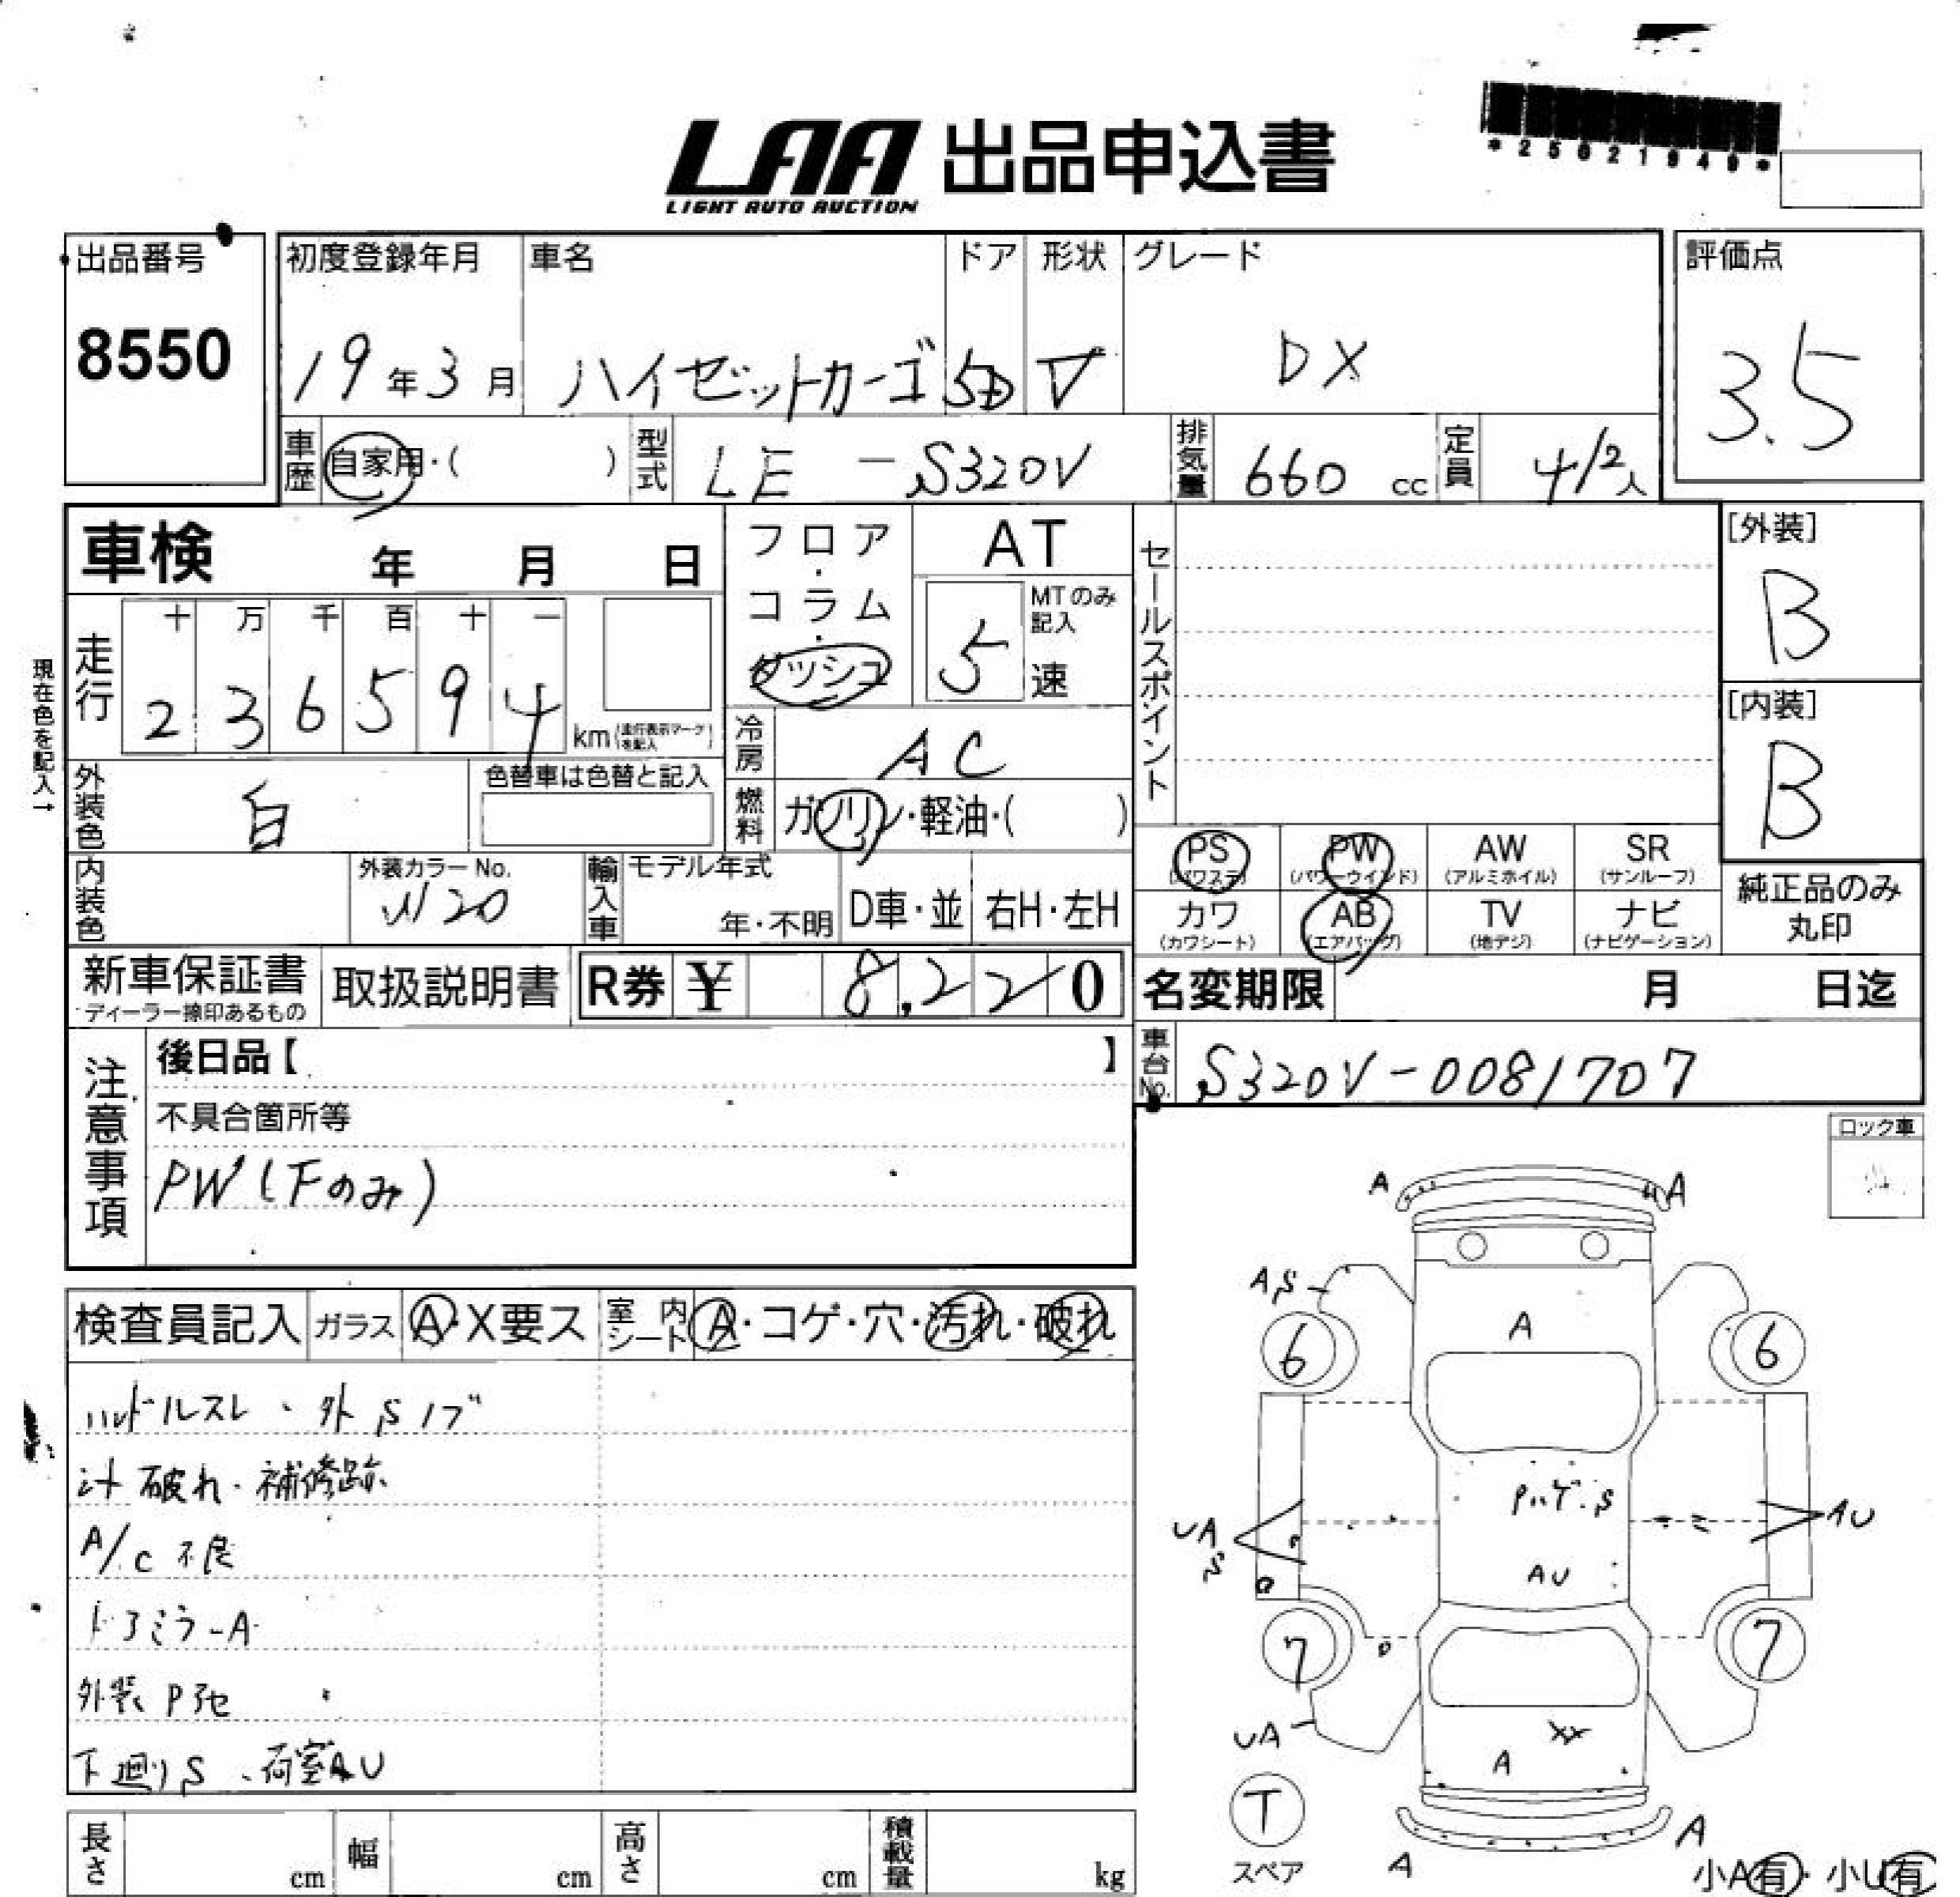 LAA 出品申込書
LIGHT AUTO AUCTION
*25021949*
出品番号
8550
初度登録年月 車名 ドア 形状 グレード
19年3月 ハイゼットカーゴ 5D V DX
評価点
3.5
車歴 自家用・( ) 型式 LE - S320V 排気量 660 cc 定員 4/2人
車検 年 月 日
フロア・コラム・ダッシュ
AT
5 MTのみ記入 速
セールスポイント
[外装]
B
[内装]
B
現在色を記入→
走行 十 万 千 百 十 一
2 3 6 5 9 4 km (走行表示マークを記入)
冷房 AC
外装色 白 色替車は色替と記入
燃料 ガソリン・軽油・( )
PS (パワステ) PW (パワーウインド) AW (アルミホイル) SR (サンルーフ)
カワ (カワシート) AB (エアバッグ) TV (地デジ) ナビ (ナビゲーション)
純正品のみ丸印
内装色 外装カラーNo. W20 輸入車 モデル年式 年・不明 D車・並 右H・左H
新車保証書 ディーラー捺印あるもの 取扱説明書 R券 ¥ 8,220
名変期限 月 日迄
車台No. S320V-0081707
注意事項
後日品【 】
不具合箇所等
PW(下のみ)
ロック車
検査員記入 ガラス A・X要ス 室内シート A・コゲ・穴・汚れ・破れ
ハンドルスレ、外Sノブ
シート破れ・補修跡
A/C 不良
ドアミラーA
外装 Pアセ
下廻りS、荷室AU
A A
AS
A
6 6
Pハゲ・S
UA S
AU
AU
7 7
UA
A XX
T
スペア
A A
小A有・小U有
長さ cm 幅 cm 高さ cm 積載量 kg